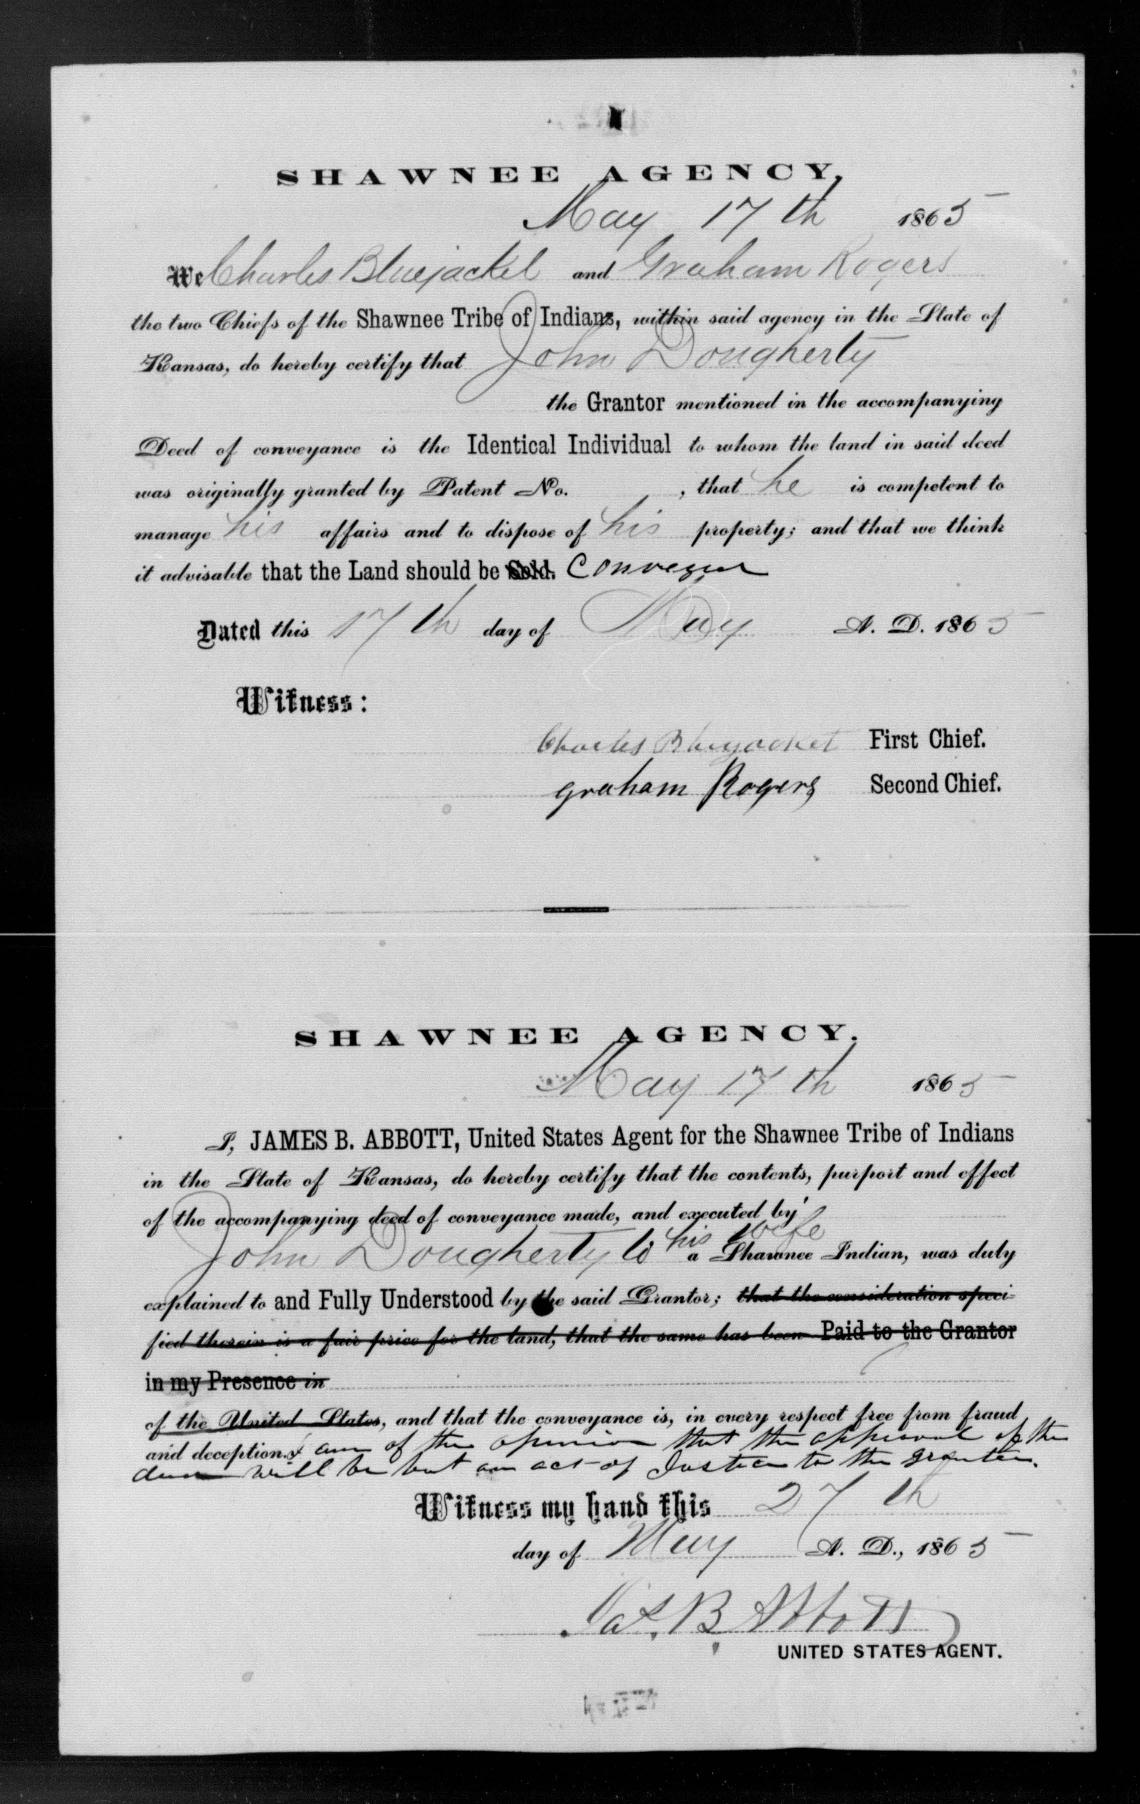 SHAWNEE AGENCY,
May 17th 1865
We Charles Bluejacket and Graham Rogers
the two Chiefs of the Shawnee Tribe of Indians, within said agency in the State of
Kansas, do hereby certify that John Dougherty
the Grantor mentioned in the accompanying
Deed of conveyance is the Identical Individual to whom the land in said deed
was originally granted by Patent No. , that he is competent to
manage his affairs and to dispose of his property; and that we think
it advisable that the Land should be Sold. Conveyed
Dated this 17th day of May A. D. 1865
Witness:
Charles Bluejacket First Chief.
Graham Rogers Second Chief.
SHAWNEE AGENCY.
May 17th 1865
I, JAMES B. ABBOTT, United States Agent for the Shawnee Tribe of Indians
in the State of Kansas, do hereby certify that the contents, purport and effect
of the accompanying deed of conveyance made, and executed by
John Dougherty to his wife a Shawnee Indian, was duly
explained to and Fully Understood by the said Grantor; that the consideration speci-
fied therein is a fair price for the land, that the same has been Paid to the Grantor
in my Presence in
of the United States, and that the conveyance is, in every respect free from fraud
and deception. & am of the opinion that the approval of the
deed will be but an act of Justice to the grantee.
Witness my hand this 27th
day of May A. D., 1865
Jas. B. Abbott
UNITED STATES AGENT.